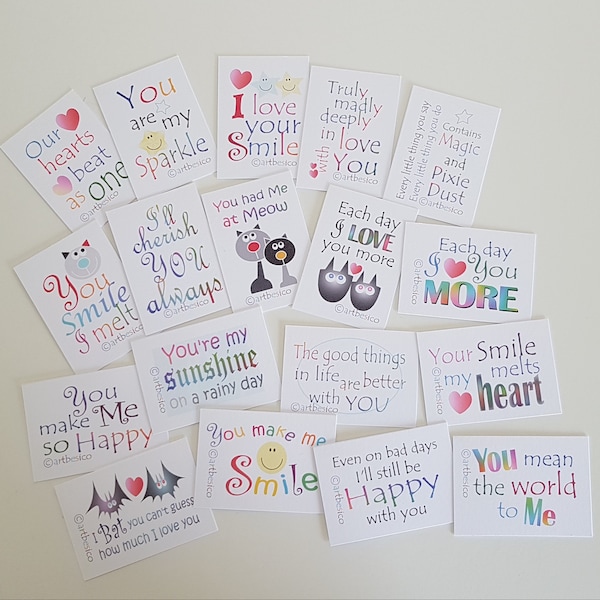 Our
hearts
beat
as one
©artbesico
You
are my
Sparkle
©artbesico
I love
your
Smile
©artbesico
Truly
madly
deeply
in love
with You
©artbesico
Every little thing you say
Every little thing you do
Contains
Magic
and
Pixie
Dust
©artbesico
You
Smile
I melt
©artbesico
I'll
cherish
YOU
always
©artbesico
You had Me
at Meow
©artbesico
Each day
I LOVE
you more
©artbesico
Each day
I You
MORE
©artbesico
You
make Me
so Happy
©artbesico
You're my
sunshine
on a rainy day
©artbesico
The good things
in life are better
with YOU
©artbesico
Your Smile
melts
my heart
©artbesico
I Bat you can't guess
how much I love you
©artbesico
You make me
Smile
©artbesico
Even on bad days
I'll still be
Happy
with you
©artbesico
YOU mean
the world
to Me
©artbesico